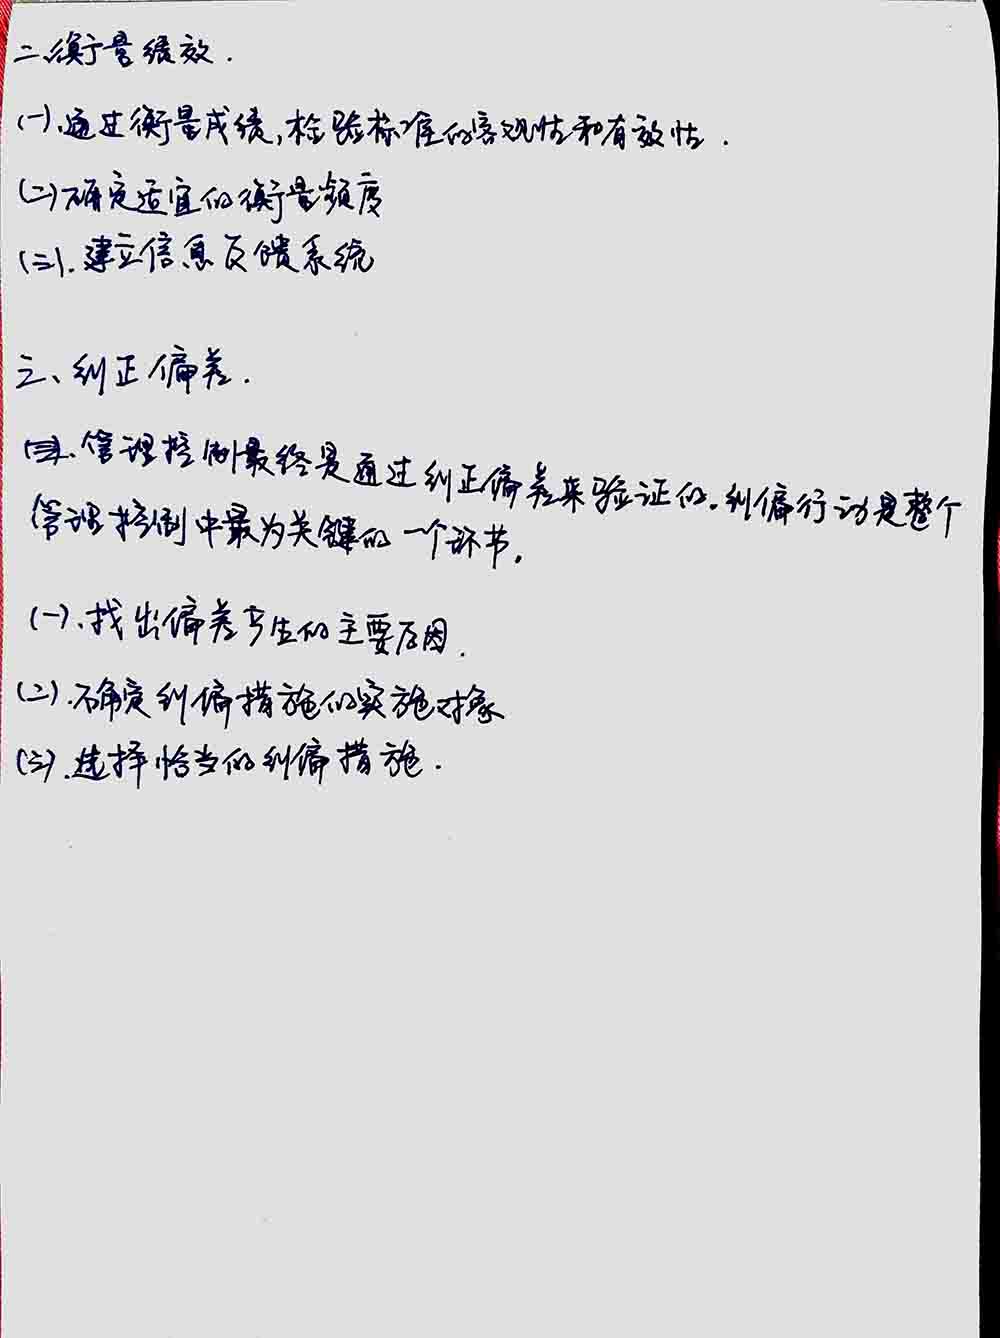 二、衡量绩效.
(一).通过衡量成绩,检验标准的客观性和有效性.
(二)确定适宜的衡量频度
(三).建立信息反馈系统
三、纠正偏差.
管理控制最终是通过纠正偏差来验证的。纠偏行动是整个
管理控制中最为关键的一个环节.
(一).找出偏差产生的主要原因.
(二).确定纠偏措施的实施对象
(三).选择恰当的纠偏措施.